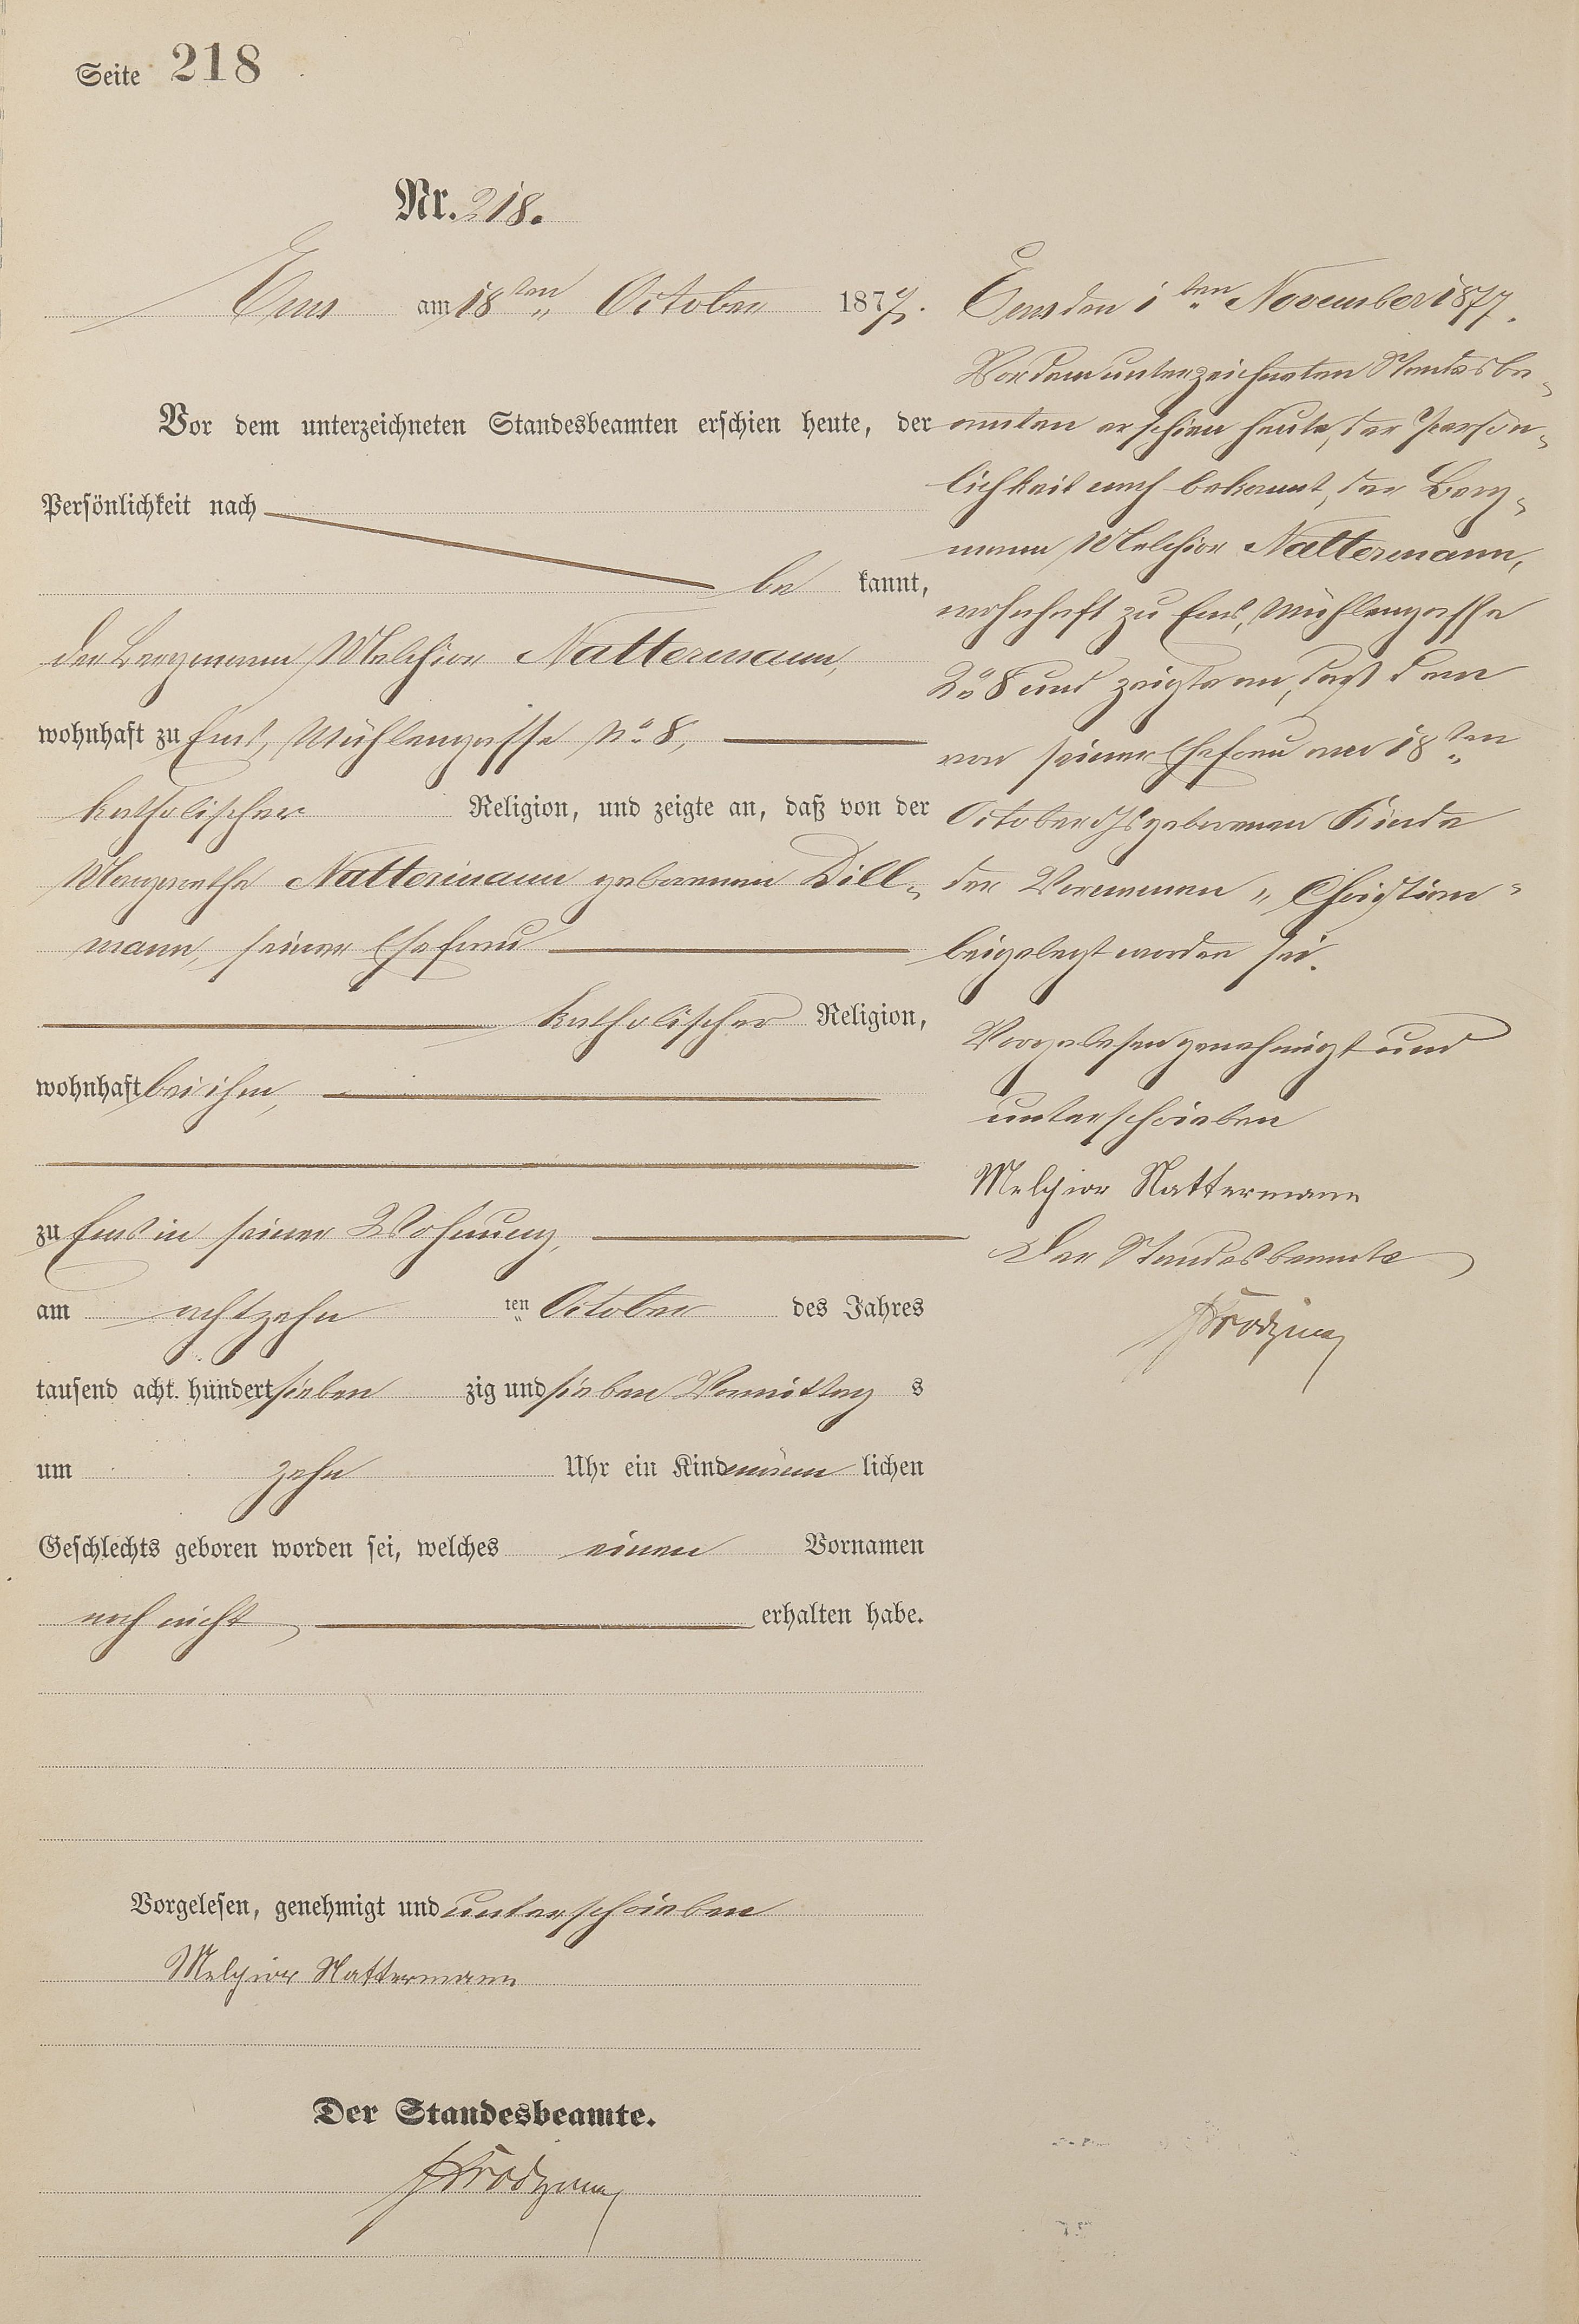 Seite 218
Nr. 218.
Ems am 18ten October 1877.
Vor dem unterzeichneten Standesbeamten erschien heute, der
Persönlichkeit nach
be kannt,
der Bergmann Melchior Nattermann,
wohnhaft zu Ems, Mühlengasse No 8,
katholischer Religion, und zeigte an, daß von der
Margarethe Nattermann geborenen Dill-
mann, seiner Ehefrau
katholischer Religion,
wohnhaft bei ihm,
zu Ems in seiner Wohnung,
am achtzehn ten October des Jahres
tausend acht hundert sieben zig und sieben Vormittag s
um zehn Uhr ein Kind männ lichen
Geschlechts geboren worden sei, welches einen Vornamen
noch nicht erhalten habe.
Vorgelesen, genehmigt und unterschrieben
Melchior Nattermann
Der Standesbeamte.
Ems den 1ten November 1877.
Vor dem unterzeichneten Standesbe-
amten erschien heute, der Persön-
lichkeit nach bekannt, der Berg-
mann Melchior Nattermann,
wohnhaft zu Ems, Mühlengasse
No 8 und zeigte an, daß dem
von seiner Ehefrau am 18ten
October geborenen Kinde
der Vornamen „Christian"
beigelegt worden sei.
Vorgelesen genehmigt und
unterschrieben
Melchior Nattermann
Der Standesbeamte